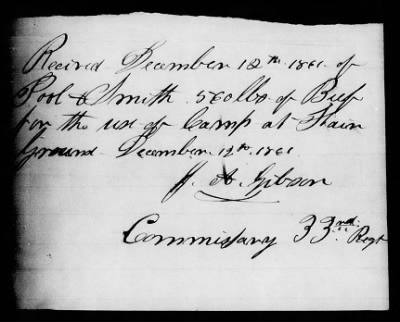 Received December 12th 1861 of
Pool & Smith 560 lbs of Beef
for the use of Camp at Fair
Ground December 12th 1861
J. A. Gibson
Commissary 33rd Regt